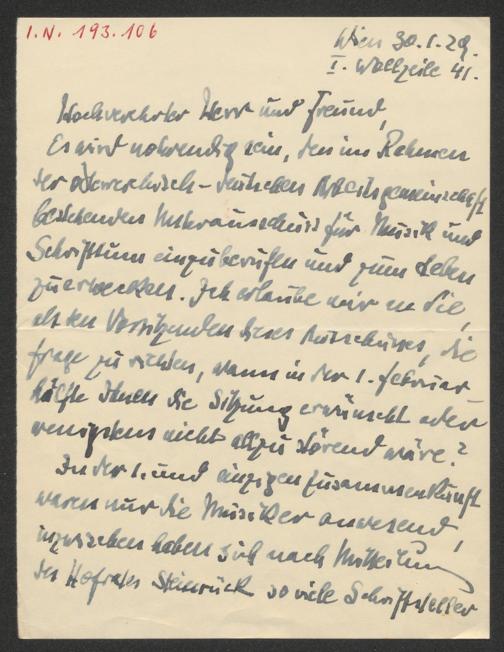 I.N. 193.106
Wien 30.1.29.
I. Wollzeile 41.
Hochverehrter Herr und Freund,
Es wird notwendig sein, den im Rahmen
der österreichisch-deutschen Arbeitsgemeinschaft
bestehenden Unterausschuss für Musik und
Schrifttum einzuberufen und zum Leben
zu erwecken. Ich erlaube mir an Sie,
als den Vorsitzenden dieses Ausschusses, die
Frage zu richten, wann in der 1. Februar
hälfte Ihnen die Sitzung erwünscht oder
wenigstens nicht allzu störend wäre?
In der 1. und einzigen Zusammenkunft
waren nur die Musiker anwesend,
inzwischen haben sich nach Mitteilung
des Hofrates Steinrück so viele Schriftsteller